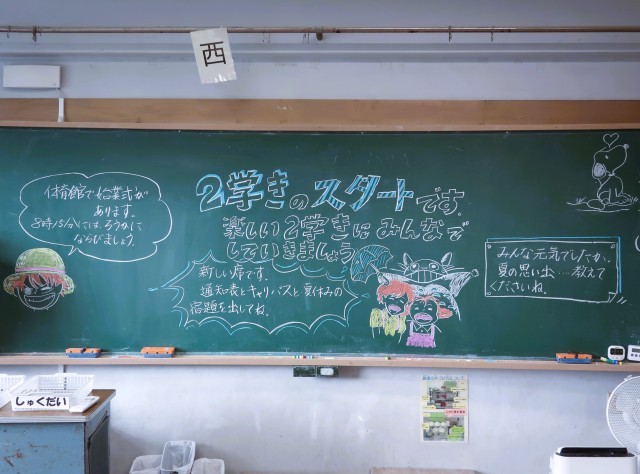 西
2学きのスタートです。
楽しい2学きにみんなで
していきましょう
体育館で始業式が
あります。
8時15分には、ろうかに
ならびましょう。
新しい席です。
通知表とキャリパスと夏休みの
宿題を出してね。
みんな元気でしたか。
夏の思い出‥‥教えて
くださいね。
しゅくだい